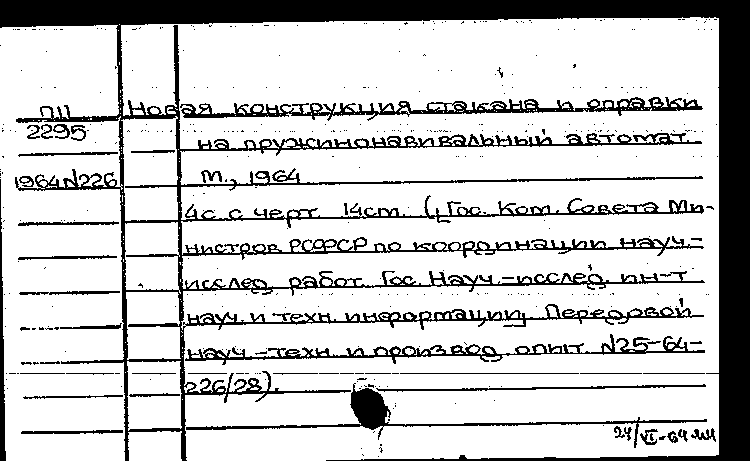 П11 Новая конструкция стакана и оправки
2295 на пружинонавивальный автомат.
1964 N226 М., 1964
4с. с черт. 14см. (Гос. Ком. Совета Ми-
нистров РСФСР по координации науч.-
исслед. работ. Гос. Науч.-исслед. ин-т
науч. и техн. информации. Передовой
науч.-техн. и производ. опыт. N25-64-
226/28).
24/VI-64